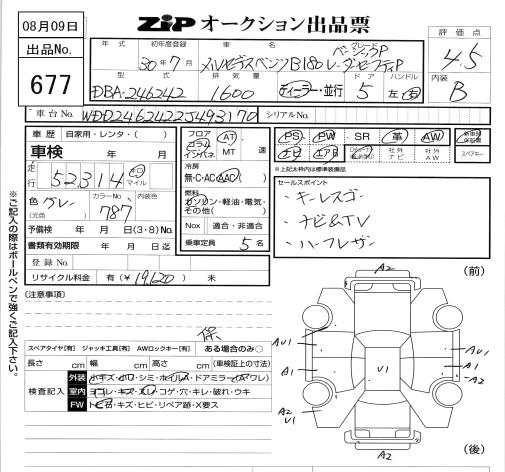 08月09日
出品No.
677
ZIP オークション出品票
年式 初年度登録 車名 グレード 評価点
30年7月 メルセデスベンツB180 ベーシックP 4.5
レーダーセーフティP
型式 排気量 ドア ハンドル 内装
DBA-246242 1600 ディーラー・並行 5 左・右 B
車台No. WDD2462422J493170 シリアルNo.
車歴 自家用・レンタ・( )
車検 年 月
走行 52314 キロ マイル
色 グレー カラーNo. 787 内装色
(元色)
予備検 年 月 日(3・8)No.
書類有効期限 年 月 日迄
登録No.
リサイクル料金 有(¥19,120) 未
フロア コラム インパネ AT MT 速
冷房
無・C・AC・AAC
燃料
ガソリン・軽油・電気・その他( )
Nox 適合・非適合
乗車定員 5名
PS PW SR 革 AW 新車時保証書
エアB 社外ナビ 社外AW スペアキー
※上記太枠内は標準装備品
セールスポイント
・キーレスゴー
・ナビ&TV
・ハーフレザー
※ご記入の際はボールペンで強くご記入下さい。
[注意事項]
保
スペアタイヤ[有] ジャッキ工具[有] AWロックキー[有] ある場合のみ○
長さ cm 幅 cm 高さ cm (車検証上の寸法)
検査記入
外装 小キズ・小ワ・シミ・ホイルA・ドアミラー(A・ワレ)
室内 ヨゴレ・キズ・スレ・コゲ・穴・キレ・破れ・ウキ
FW トビ石・キズ・ヒビ・リペア跡・X要ス
(前)
A2
AU1
A1
A2
U1
V1
AU1
A1
A2
A2
(後)